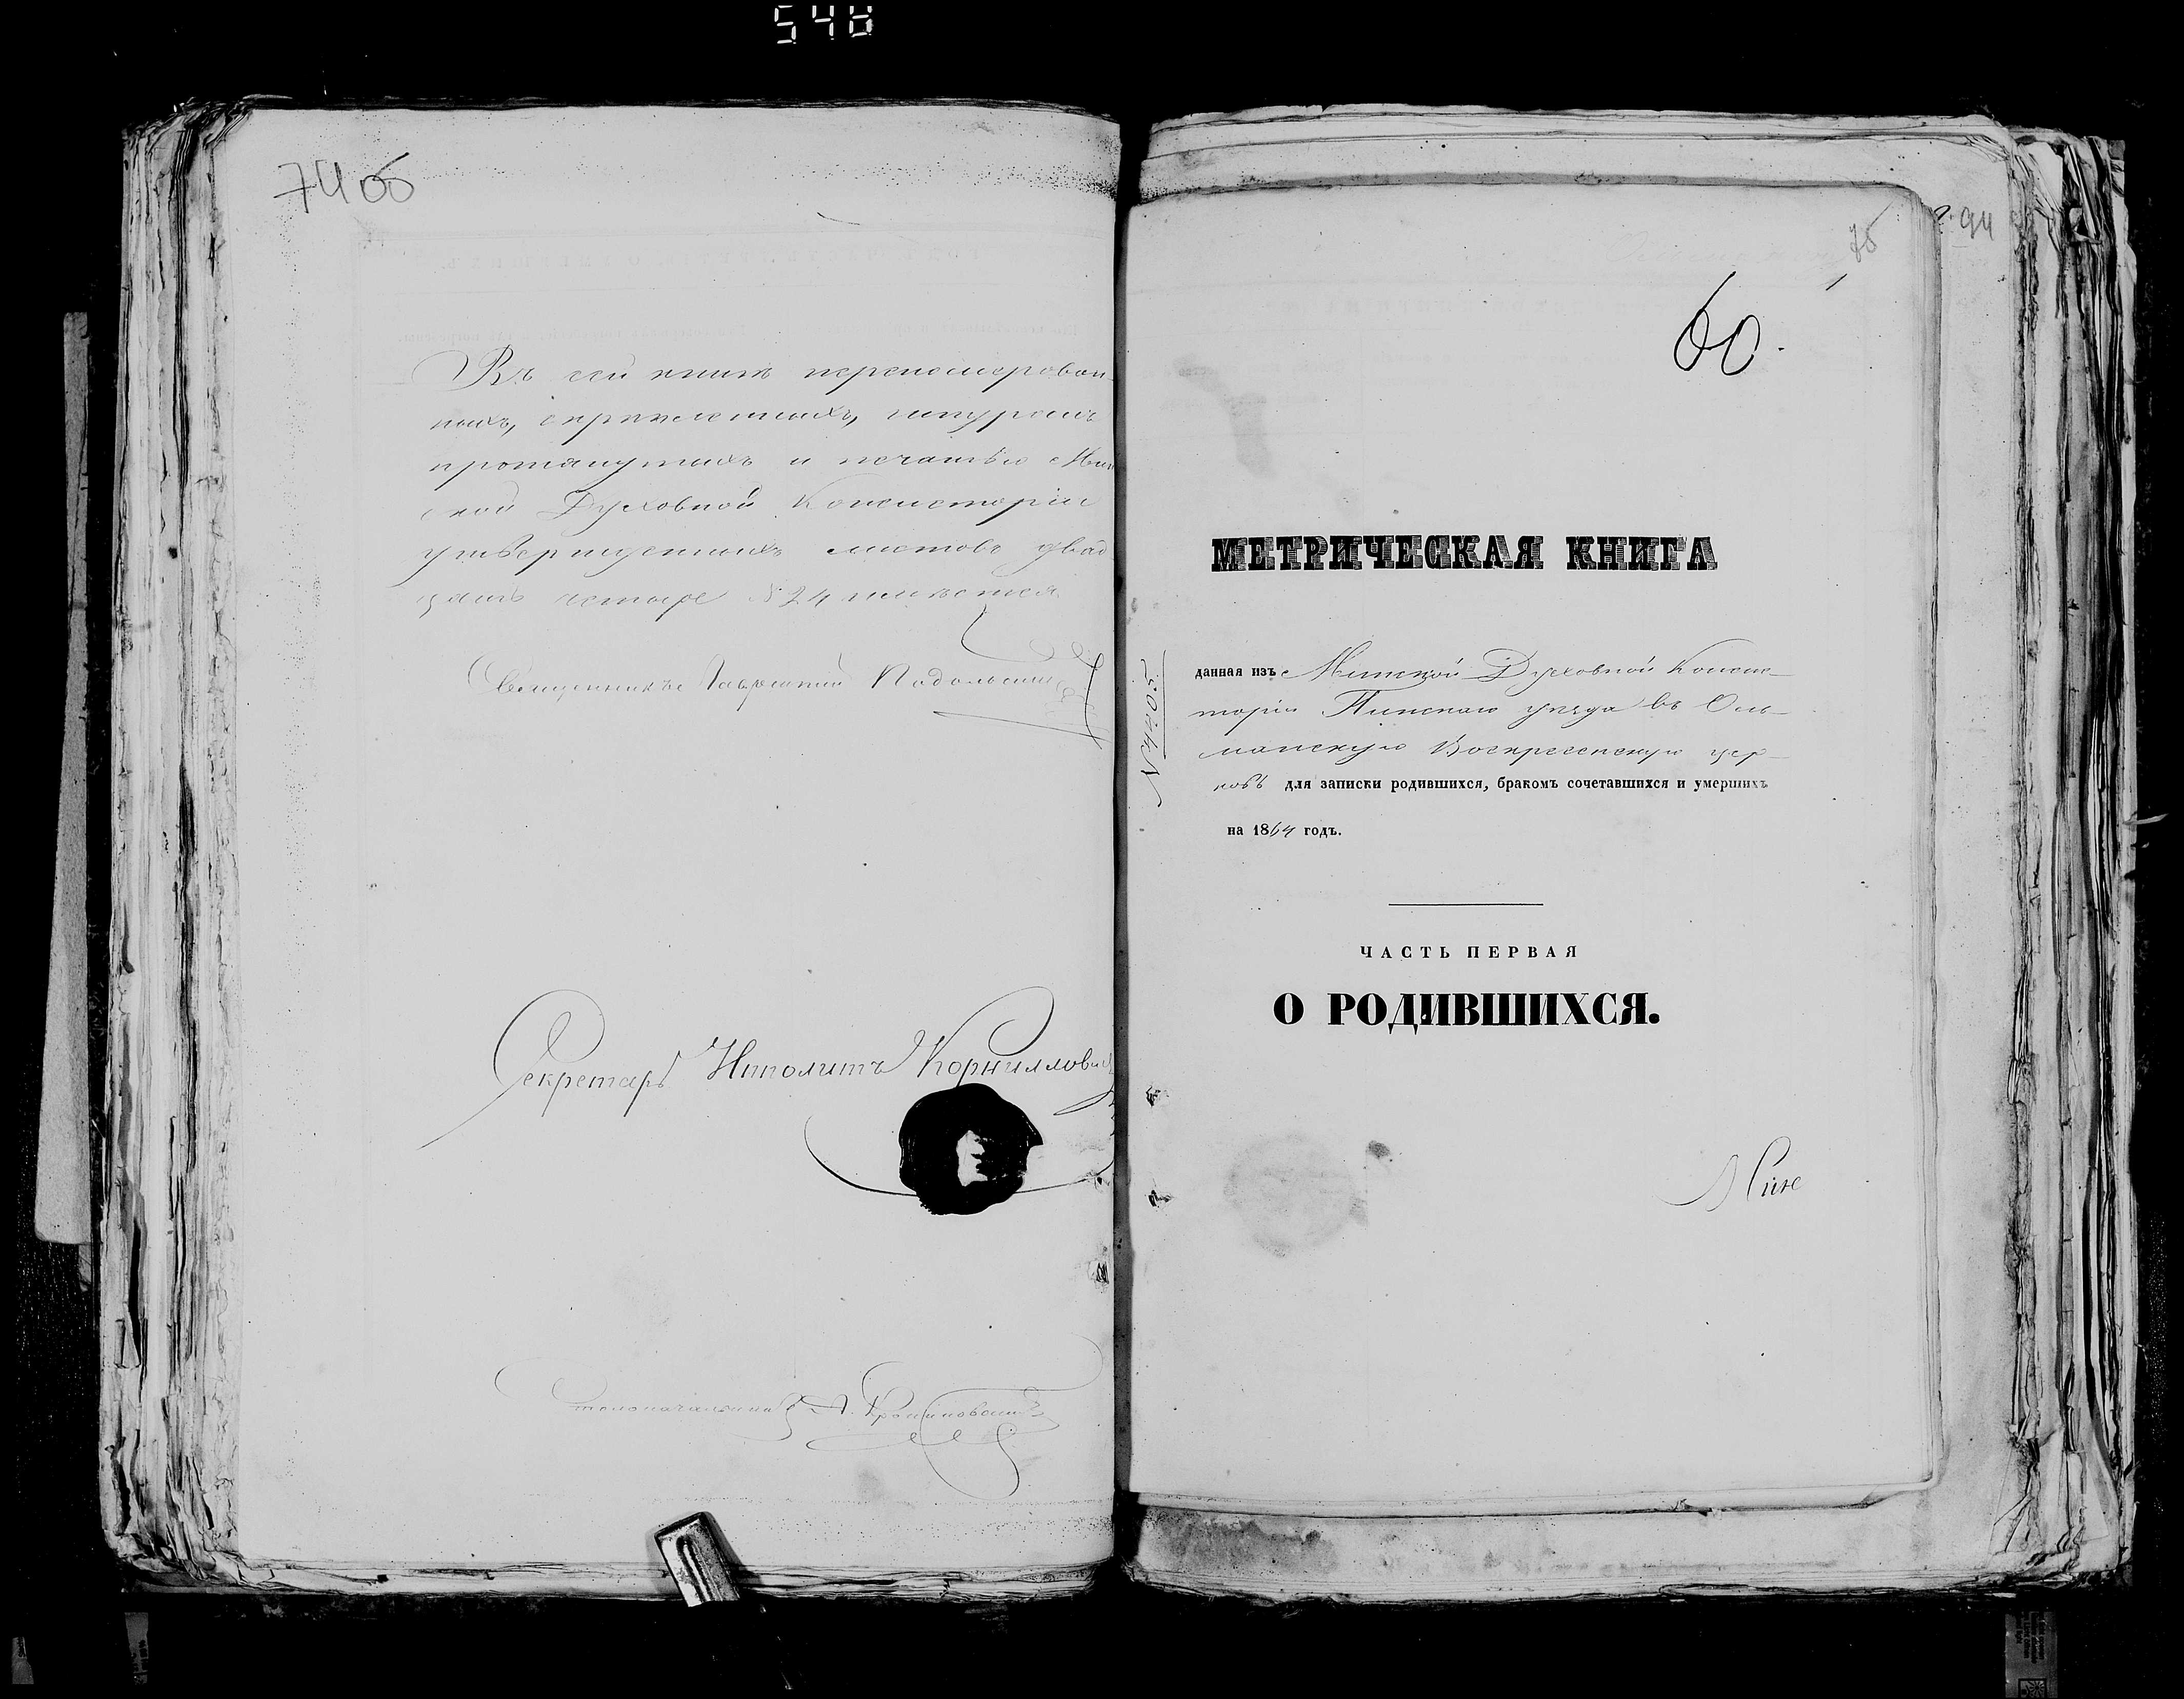 548
74об
Въ сей книгѣ перенумерован-
ныхъ, скрѣпленныхъ, шнуромъ
протянутыхъ и печатью Мин
ской Духовной Консисторіи
утвержденныхъ листовъ двад
цать четыре 24 имѣется
Священникъ Лаврентій Подольскій
Секретарь Иполитъ Корнилович
Столоначальникъ А.
94
75
60.
МЕТРИЧЕСКАЯ КНИГА
данная изъ Минской Духовной Консис-
торіи Пинскаго уѣзда въ Оль-
манскую Воскресенскую цер-
ковь для записки родившихся, бракомъ сочетавшихся и умершихъ
на 1864 годъ.
№ 4205
ЧАСТЬ ПЕРВАЯ
О РОДИВШИХСЯ.